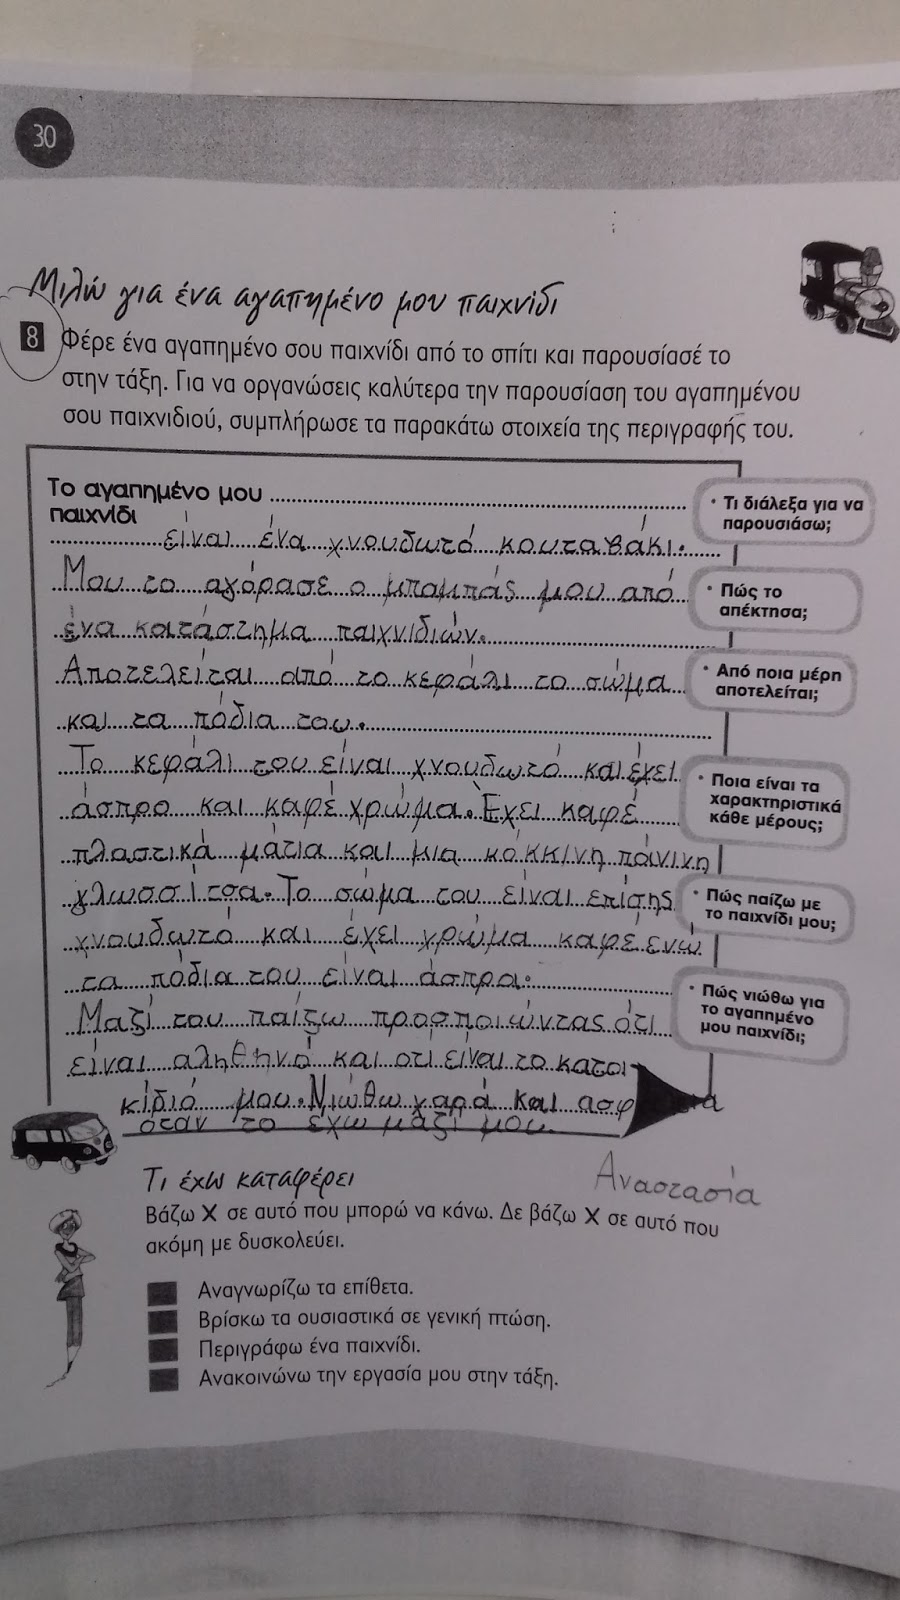 30
Μιλώ για ένα αγαπημένο μου παιχνίδι
8 Φέρε ένα αγαπημένο σου παιχνίδι από το σπίτι και παρουσίασέ το
στην τάξη. Για να οργανώσεις καλύτερα την παρουσίαση του αγαπημένου
σου παιχνιδιού, συμπλήρωσε τα παρακάτω στοιχεία της περιγραφής του.
Το αγαπημένο μου
παιχνίδι
είναι ένα χνουδωτό κουταβάκι.
Μου το αγόρασε ο μπαμπάς μου από
ένα κατάστημα παιχνιδιών.
Αποτελείται από το κεφάλι το σώμα
και τα πόδια του.
Το κεφάλι του είναι χνουδωτό και έχει
άσπρο και καφέ χρώμα. Έχει καφέ
πλαστικά μάτια και μια κόκκινη πάνινη
γλωσσίτσα. Το σώμα του είναι επίσης
χνουδωτό και έχει χρώμα καφέ ενώ
τα πόδια του είναι άσπρα.
Μαζί του παίζω προσποιώντας ότι
είναι αληθηνό και οτι είναι το κατοι-
κίδιό μου. Νιώθω χαρά και
όταν το έχω μαζί μου.
• Τι διάλεξα για να
παρουσιάσω;
• Πώς το
απέκτησα;
• Από ποια μέρη
αποτελείται;
• Ποια είναι τα
χαρακτηριστικά
κάθε μέρους;
• Πώς παίζω με
το παιχνίδι μου;
• Πώς νιώθω για
το αγαπημένο
μου παιχνίδι;
Αναστασία
Τι έχω καταφέρει
Βάζω Χ σε αυτό που μπορώ να κάνω. Δε βάζω Χ σε αυτό που
ακόμη με δυσκολεύει.
Αναγνωρίζω τα επίθετα.
Βρίσκω τα ουσιαστικά σε γενική πτώση.
Περιγράφω ένα παιχνίδι.
Ανακοινώνω την εργασία μου στην τάξη.